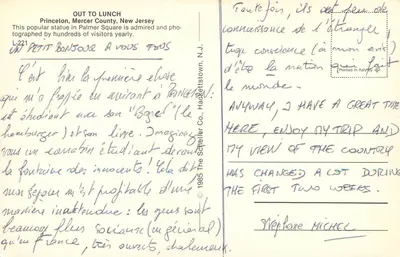 OUT TO LUNCH
Princeton, Mercer County, New Jersey
This popular statue in Palmer Square is admired and pho-
tographed by hundreds of visitors yearly.
L-221
UN PETIT BONJOUR A VOUS TOUS
C'est bien la première chose
qui m'a frappé en arrivant à PRINCETON:
cet étudiant avec son "Bigmac" (le
hamburger) et son livre. Imaginez
vous un étudiant devant
la fontaine des innocents! Cela dit
mon séjour m'est profitable d'une
manière inattendue: les gens sont
beaucoup plus sociaux (en général)
qu'en France, très ouverts, chaleureux.
© 1985 The Scheller Co., Hackettstown, N.J.
Toutefois, ils ont peu de
connaissance de l'étranger,
conscience (à mon avis)
d'être la nation qui fait
le monde.
ANYWAY, I HAVE A GREAT TIME
HERE, ENJOY MY TRIP AND
MY VIEW OF THE COUNTRY
HAS CHANGED A LOT DURING
THE FIRST TWO WEEKS.
Stéphane MICHEL